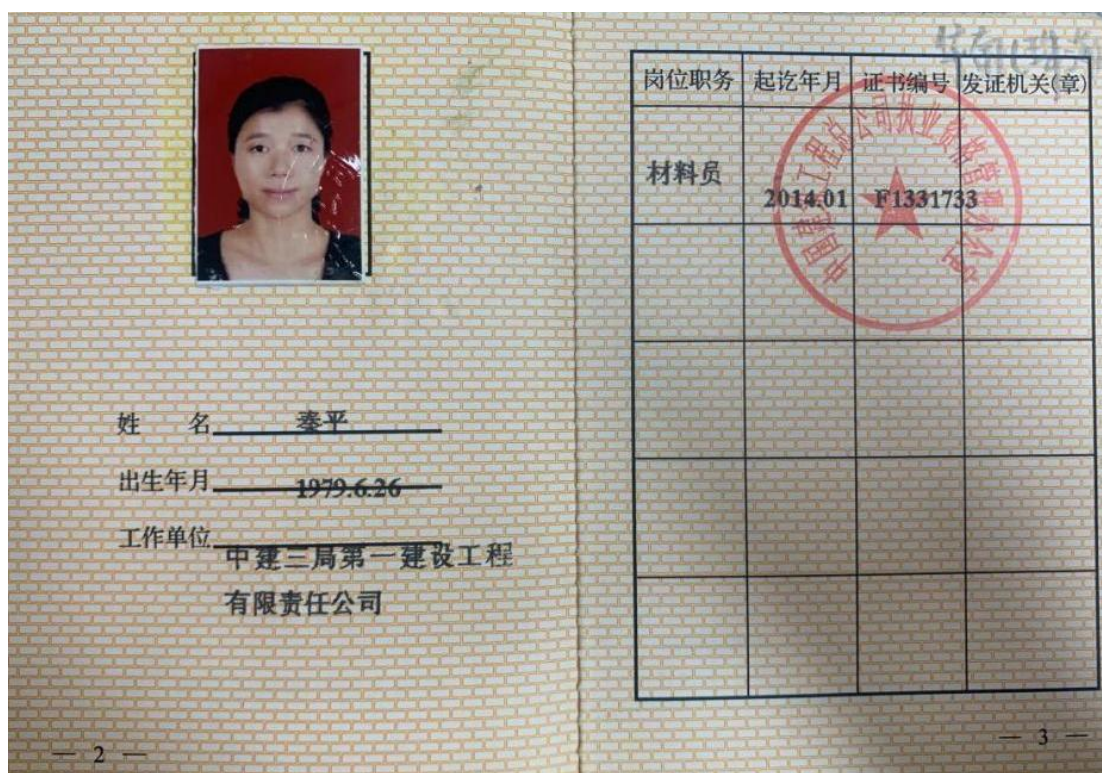 姓 名 秦平
出生年月 1979.6.26
工作单位 中建三局第一建设工程
有限责任公司
— 2 —
岗位职务 起讫年月 证书编号 发证机关(章)
材料员
2014.01 F1331733
中国建筑工程总公司执业资格管理办公室
— 3 —